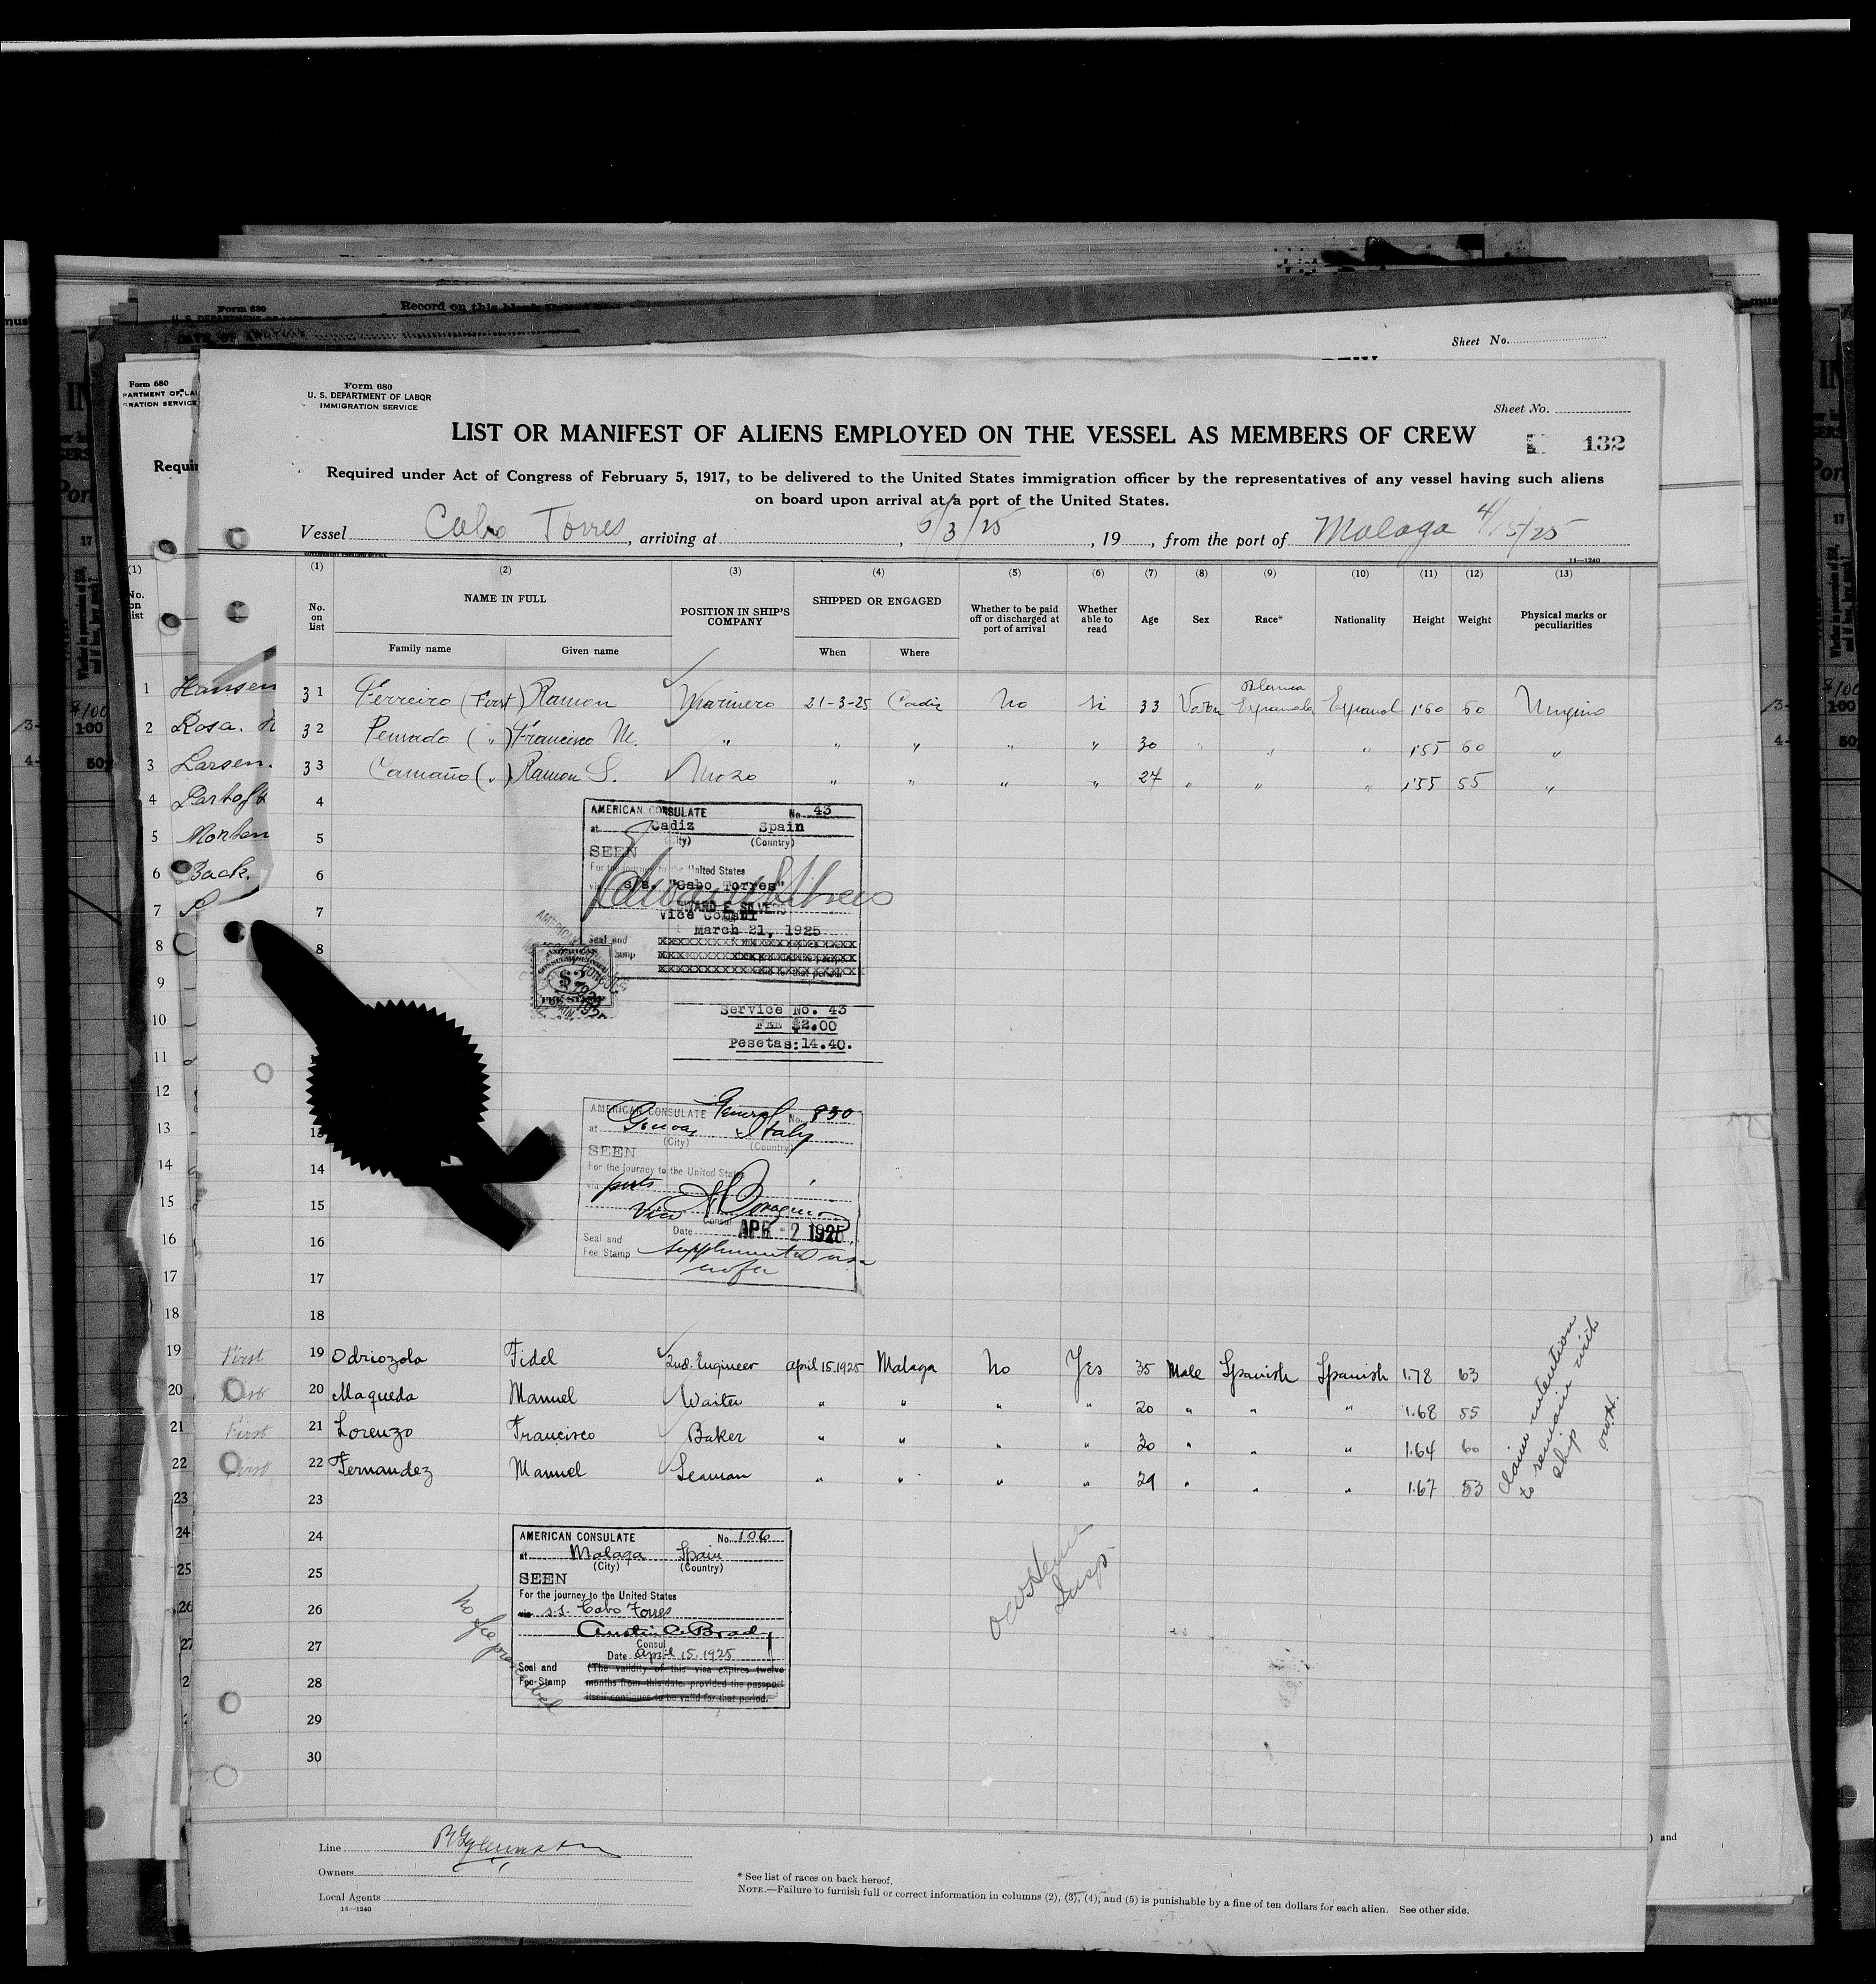 Form 680
Record on this blank
Sheet No.
Form 680
U. S. DEPARTMENT OF LABOR
IMMIGRATION SERVICE
Sheet No.
LIST OR MANIFEST OF ALIENS EMPLOYED ON THE VESSEL AS MEMBERS OF CREW
132
Required under Act of Congress of February 5, 1917, to be delivered to the United States immigration officer by the representatives of any vessel having such aliens
on board upon arrival at a port of the United States.
Vessel Cabo Torres, arriving at , 5/3/25, 19 , from the port of Malaga 4/15/25
14—1240
(1) (2) (3) (4) (5) (6) (7) (8) (9) (10) (11) (12) (13)
No. on list
NAME IN FULL
Family name
Given name
POSITION IN SHIP'S COMPANY
SHIPPED OR ENGAGED
When
Where
Whether to be paid off or discharged at port of arrival
Whether able to read
Age
Sex
Race*
Nationality
Height
Weight
Physical marks or peculiarities
31 Ferreiro (First) Ramon Marinero 21-3-25 Cadiz No si 33 Varon Blanca Española Español 1'60 60 Ninguno
32 Pensado ( " ) Francisco M. " " " " " 30 " " " 1'55 60 "
33 Camaño ( " ) Ramon S. Mozo " " " " 27 " " " 1'55 55 "
1 Hansen
2 Rosa.
3 Larsen.
4
5 Morten
6 Back.
7
8
9
10
11
12
13
14
15
16
17
18
4
5
6
7
8
AMERICAN CONSULATE No. 43
at Cadiz Spain
(City) (Country)
SEEN
For the journey to the United States
via s/s. "Cabo Torres"
EDWARD E. SILVERS
Vice Consul
March 21, 1925
Seal and
Service No. 43
FEE $2.00
Pesetas: 14.40.
AMERICAN CONSULATE General No. 830
at Genoa Italy
(City) (Country)
SEEN
For the journey to the United States
via ports
Vice Consul
Date APR - 2 1925
Seal and
Fee Stamp supplemental visa
no fee
13
14
15
16
17
18
First 19 Odriozola Fidel 2nd. Engineer april 15.1925 Malaga No Yes 35 Male Spanish Spanish 1.78 63
First 20 Maqueda Manuel Waiter " " " " 20 " " " 1.68 55
First 21 Lorenzo Francisco Baker " " " " 30 " " " 1.64 60
First 22 Fernandez Manuel Seaman " " " " 29 " " " 1.67 53
claim intention
to remain with
ship
23
24
25
26
27
28
29
30
AMERICAN CONSULATE No. 106
at Malaga Spain
(City) (Country)
SEEN
For the journey to the United States
via s.s. Cabo Torres
Austin C. Brady
Consul
Date April 15, 1925
Seal and
Fee Stamp
(The validity of this visa expires twelve
months from this date, provided the passport
itself continues to be valid for that period.
No fee prescribed
Insp
Line
Owners
Local Agents
14—1240
* See list of races on back hereof.
NOTE.—Failure to furnish full or correct information in columns (2), (3), (4), and (5) is punishable by a fine of ten dollars for each alien. See other side.